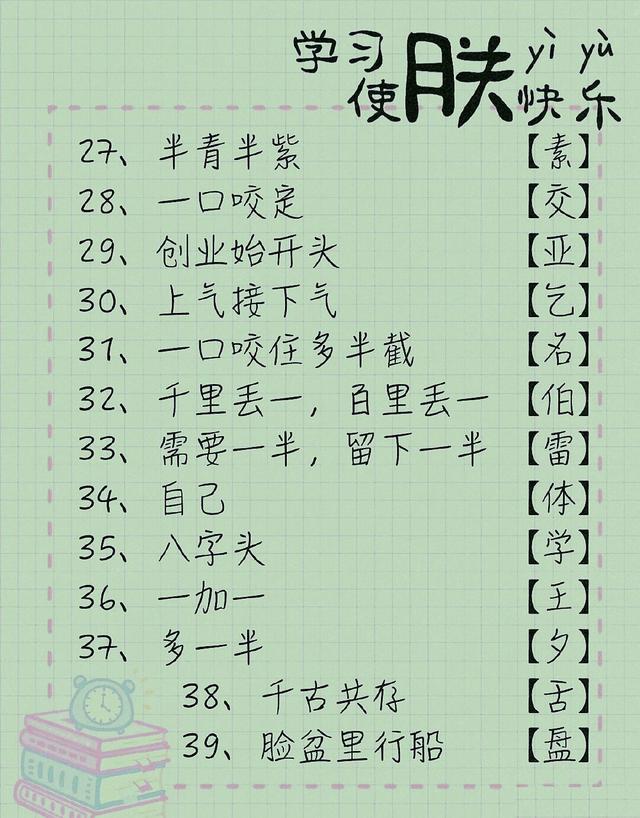 学习
使朕快乐
yì yù
27、半青半紫【素】
28、一口咬定【交】
29、创业始开头【亚】
30、上气接下气【乞】
31、一口咬住多半截【名】
32、千里丢一，百里丢一【伯】
33、需要一半，留下一半【雷】
34、自己【体】
35、八字头【学】
36、一加一【王】
37、多一半【夕】
38、千古共存【舌】
39、脸盆里行船【盘】